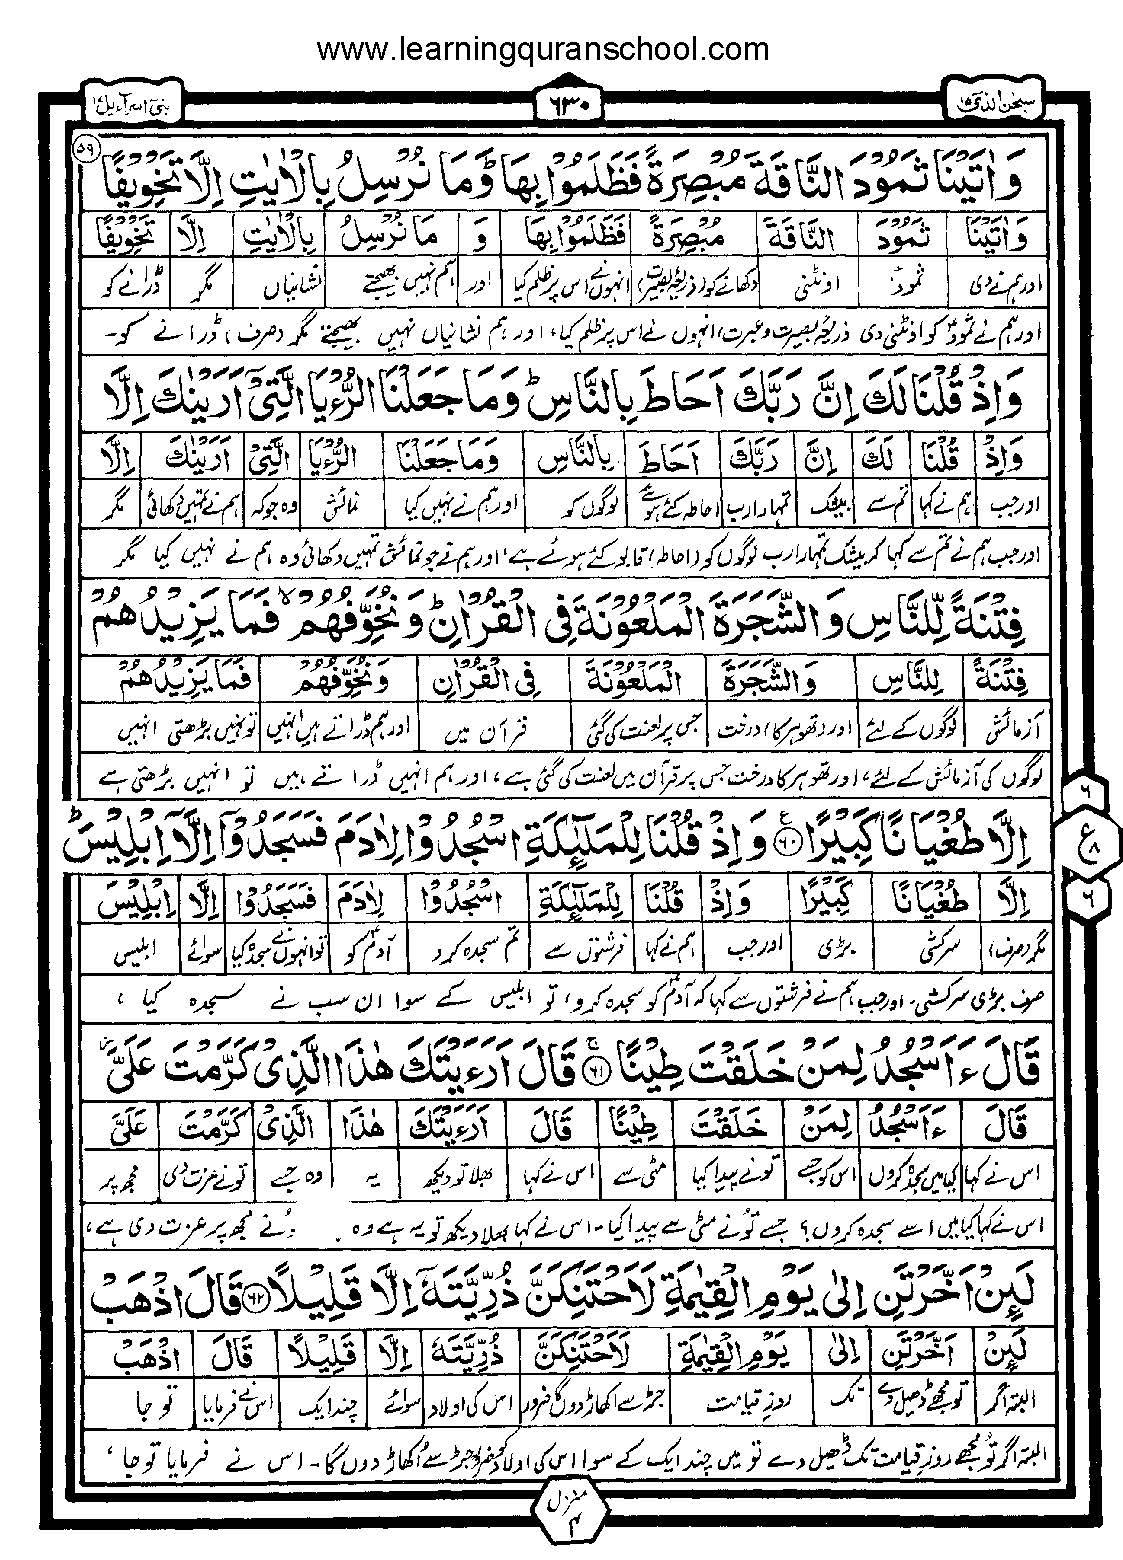 www.learningquranschool.com
سبحن الذی ۱۵ ۶۳۰ بنی اسرآءیل ۱۷
وَاٰتَيْنَا ثَمُوْدَ النَّاقَةَ مُبْصِرَةً فَظَلَمُوْا بِهَا ؕ وَمَا نُرْسِلُ بِالْاٰيٰتِ اِلَّا تَخْوِيْفًا ۵۹
وَاٰتَيْنَا ثَمُوْدَ النَّاقَةَ مُبْصِرَةً فَظَلَمُوْا بِهَا وَ مَا نُرْسِلُ بِالْاٰيٰتِ اِلَّا تَخْوِيْفًا
اور ہم نے دی ثمود اونٹنی دکھانے کو (ذریعۂ بصیرت) انہوں نے اس پر ظلم کیا اور ہم نہیں بھیجتے نشانیاں مگر ڈرانے کو
اور ہم نے ثمود کو اونٹنی دی ذریعۂ بصیرت و عبرت، انہوں نے اس پر ظلم کیا، اور ہم نشانیاں نہیں بھیجتے مگر (صرف) ڈرانے کو۔
وَاِذْ قُلْنَا لَكَ اِنَّ رَبَّكَ اَحَاطَ بِالنَّاسِ ؕ وَمَا جَعَلْنَا الرُّءْيَا الَّتِيْٓ اَرَيْنٰكَ اِلَّا
وَاِذْ قُلْنَا لَكَ اِنَّ رَبَّكَ اَحَاطَ بِالنَّاسِ وَمَا جَعَلْنَا الرُّءْيَا الَّتِيْٓ اَرَيْنٰكَ اِلَّا
اور جب ہم نے کہا تم سے بیشک تمہارا رب احاطہ کئے ہوئے لوگوں کو اور ہم نے نہیں کیا نمائش وہ جو کہ ہم نے تمہیں دکھائی مگر
اور جب ہم نے تم سے کہا کہ بیشک تمہارا رب لوگوں کو (احاطہ) قابو کئے ہوئے ہے، اور ہم نے جو نمائش تمہیں دکھائی وہ ہم نے نہیں کیا مگر
فِتْنَةً لِّلنَّاسِ وَالشَّجَرَةَ الْمَلْعُوْنَةَ فِي الْقُرْاٰنِ ؕ وَنُخَوِّفُهُمْ ۙ فَمَا يَزِيْدُهُمْ
فِتْنَةً لِّلنَّاسِ وَالشَّجَرَةَ الْمَلْعُوْنَةَ فِي الْقُرْاٰنِ وَنُخَوِّفُهُمْ فَمَا يَزِيْدُهُمْ
آزمائش لوگوں کے لئے اور (تھوہر کا) درخت جس پر لعنت کی گئی قرآن میں اور ہم ڈراتے ہیں انہیں تو نہیں بڑھتی انہیں
لوگوں کی آزمائش کے لئے، اور تھوہر کا درخت جس پر قرآن میں لعنت کی گئی ہے، اور ہم انہیں ڈراتے ہیں تو انہیں بڑھتی ہے
اِلَّا طُغْيَانًا كَبِيْرًا ۶۰ ع وَاِذْ قُلْنَا لِلْمَلٰٓئِكَةِ اسْجُدُوْا لِاٰدَمَ فَسَجَدُوْٓا اِلَّآ اِبْلِيْسَ ؕ
۶ ع ۸ ۶
اِلَّا طُغْيَانًا كَبِيْرًا وَاِذْ قُلْنَا لِلْمَلٰٓئِكَةِ اسْجُدُوْا لِاٰدَمَ فَسَجَدُوْٓا اِلَّآ اِبْلِيْسَ
مگر (صرف) سرکشی بڑی اور جب ہم نے کہا فرشتوں سے تم سجدہ کرو آدم کو تو انہوں نے سجدہ کیا سوائے ابلیس
صرف بڑی سرکشی۔ اور جب ہم نے فرشتوں سے کہا کہ آدم کو سجدہ کرو، تو ابلیس کے سوا ان سب نے سجدہ کیا،
قَالَ ءَاَسْجُدُ لِمَنْ خَلَقْتَ طِيْنًا ۶۱ قَالَ اَرَءَيْتَكَ هٰذَا الَّذِيْ كَرَّمْتَ عَلَيَّ
قَالَ ءَاَسْجُدُ لِمَنْ خَلَقْتَ طِيْنًا قَالَ اَرَءَيْتَكَ هٰذَا الَّذِيْ كَرَّمْتَ عَلَيَّ
اس نے کہا کیا میں سجدہ کروں اس کو جسے تونے پیدا کیا مٹی سے اس نے کہا بھلا تو دیکھ یہ وہ جسے تونے عزت دی مجھ پر
اس نے کہا کیا میں اسے سجدہ کروں؟ جسے تونے مٹی سے پیدا کیا۔ اس نے کہا بھلا دیکھ تو یہ ہے وہ نے مجھ پر عزت دی ہے،
لَئِنْ اَخَّرْتَنِ اِلٰى يَوْمِ الْقِيٰمَةِ لَاَحْتَنِكَنَّ ذُرِّيَّتَهٗٓ اِلَّا قَلِيْلًا ۶۲ قَالَ اذْهَبْ
لَئِنْ اَخَّرْتَنِ اِلٰى يَوْمِ الْقِيٰمَةِ لَاَحْتَنِكَنَّ ذُرِّيَّتَهٗٓ اِلَّا قَلِيْلًا قَالَ اذْهَبْ
البتہ اگر تو مجھے ڈھیل دے تک روزِ قیامت جڑ سے اکھاڑ دوں گا ضرور اس کی اولاد سوائے چند ایک اس نے فرمایا تو جا
البتہ اگر تو مجھے روزِ قیامت تک ڈھیل دے تو میں چند ایک کے سوا اس کی اولاد کو ضرور جڑ سے اکھاڑ دوں گا۔ اس نے فرمایا تو جا،
منزل ۴